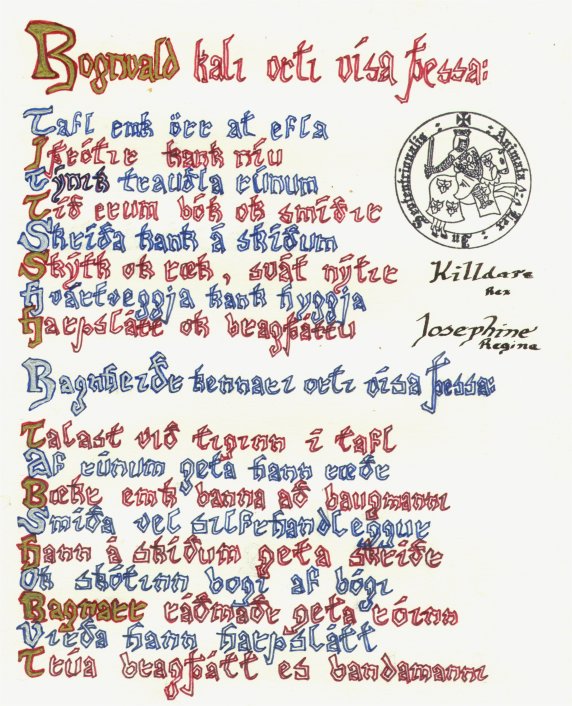 Rognvald kali orti vísa þessa:
Tafl emk örr at efla
Iþrótir kank níu
Týnik trauðla rúnum
Tíð erum bók ok smíðir
Skríða kank á skíðum
Skýtk ok rœk, svát nýtir
hvártveggja kank hyggja
harpslátt ok bragþáttu
Killdare
Rex
Josephine
Regina
Ragnheiðr kennari orti vísa þessa:
Talast við tiginn i tafl
Af rúnum geta hann rœðr
Bœkr emk banna að baugmanni
Smíða vel silfrhandleggur
hann á skíðum geta skriðr
Ok skótinn bogi af bógi
Ragnarr ráðmaðr geta róinn
Virða hann harpslátt
Trúa bragþátt es bandamanni